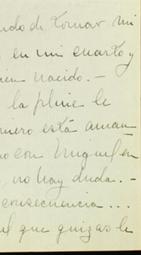 ndo de tomar mi
en mi cuarto y
ien nacido. —
la pluie le
niero está aman
o con Miguel en
, no hay duda. —
consecuencia ...
el que quizas le